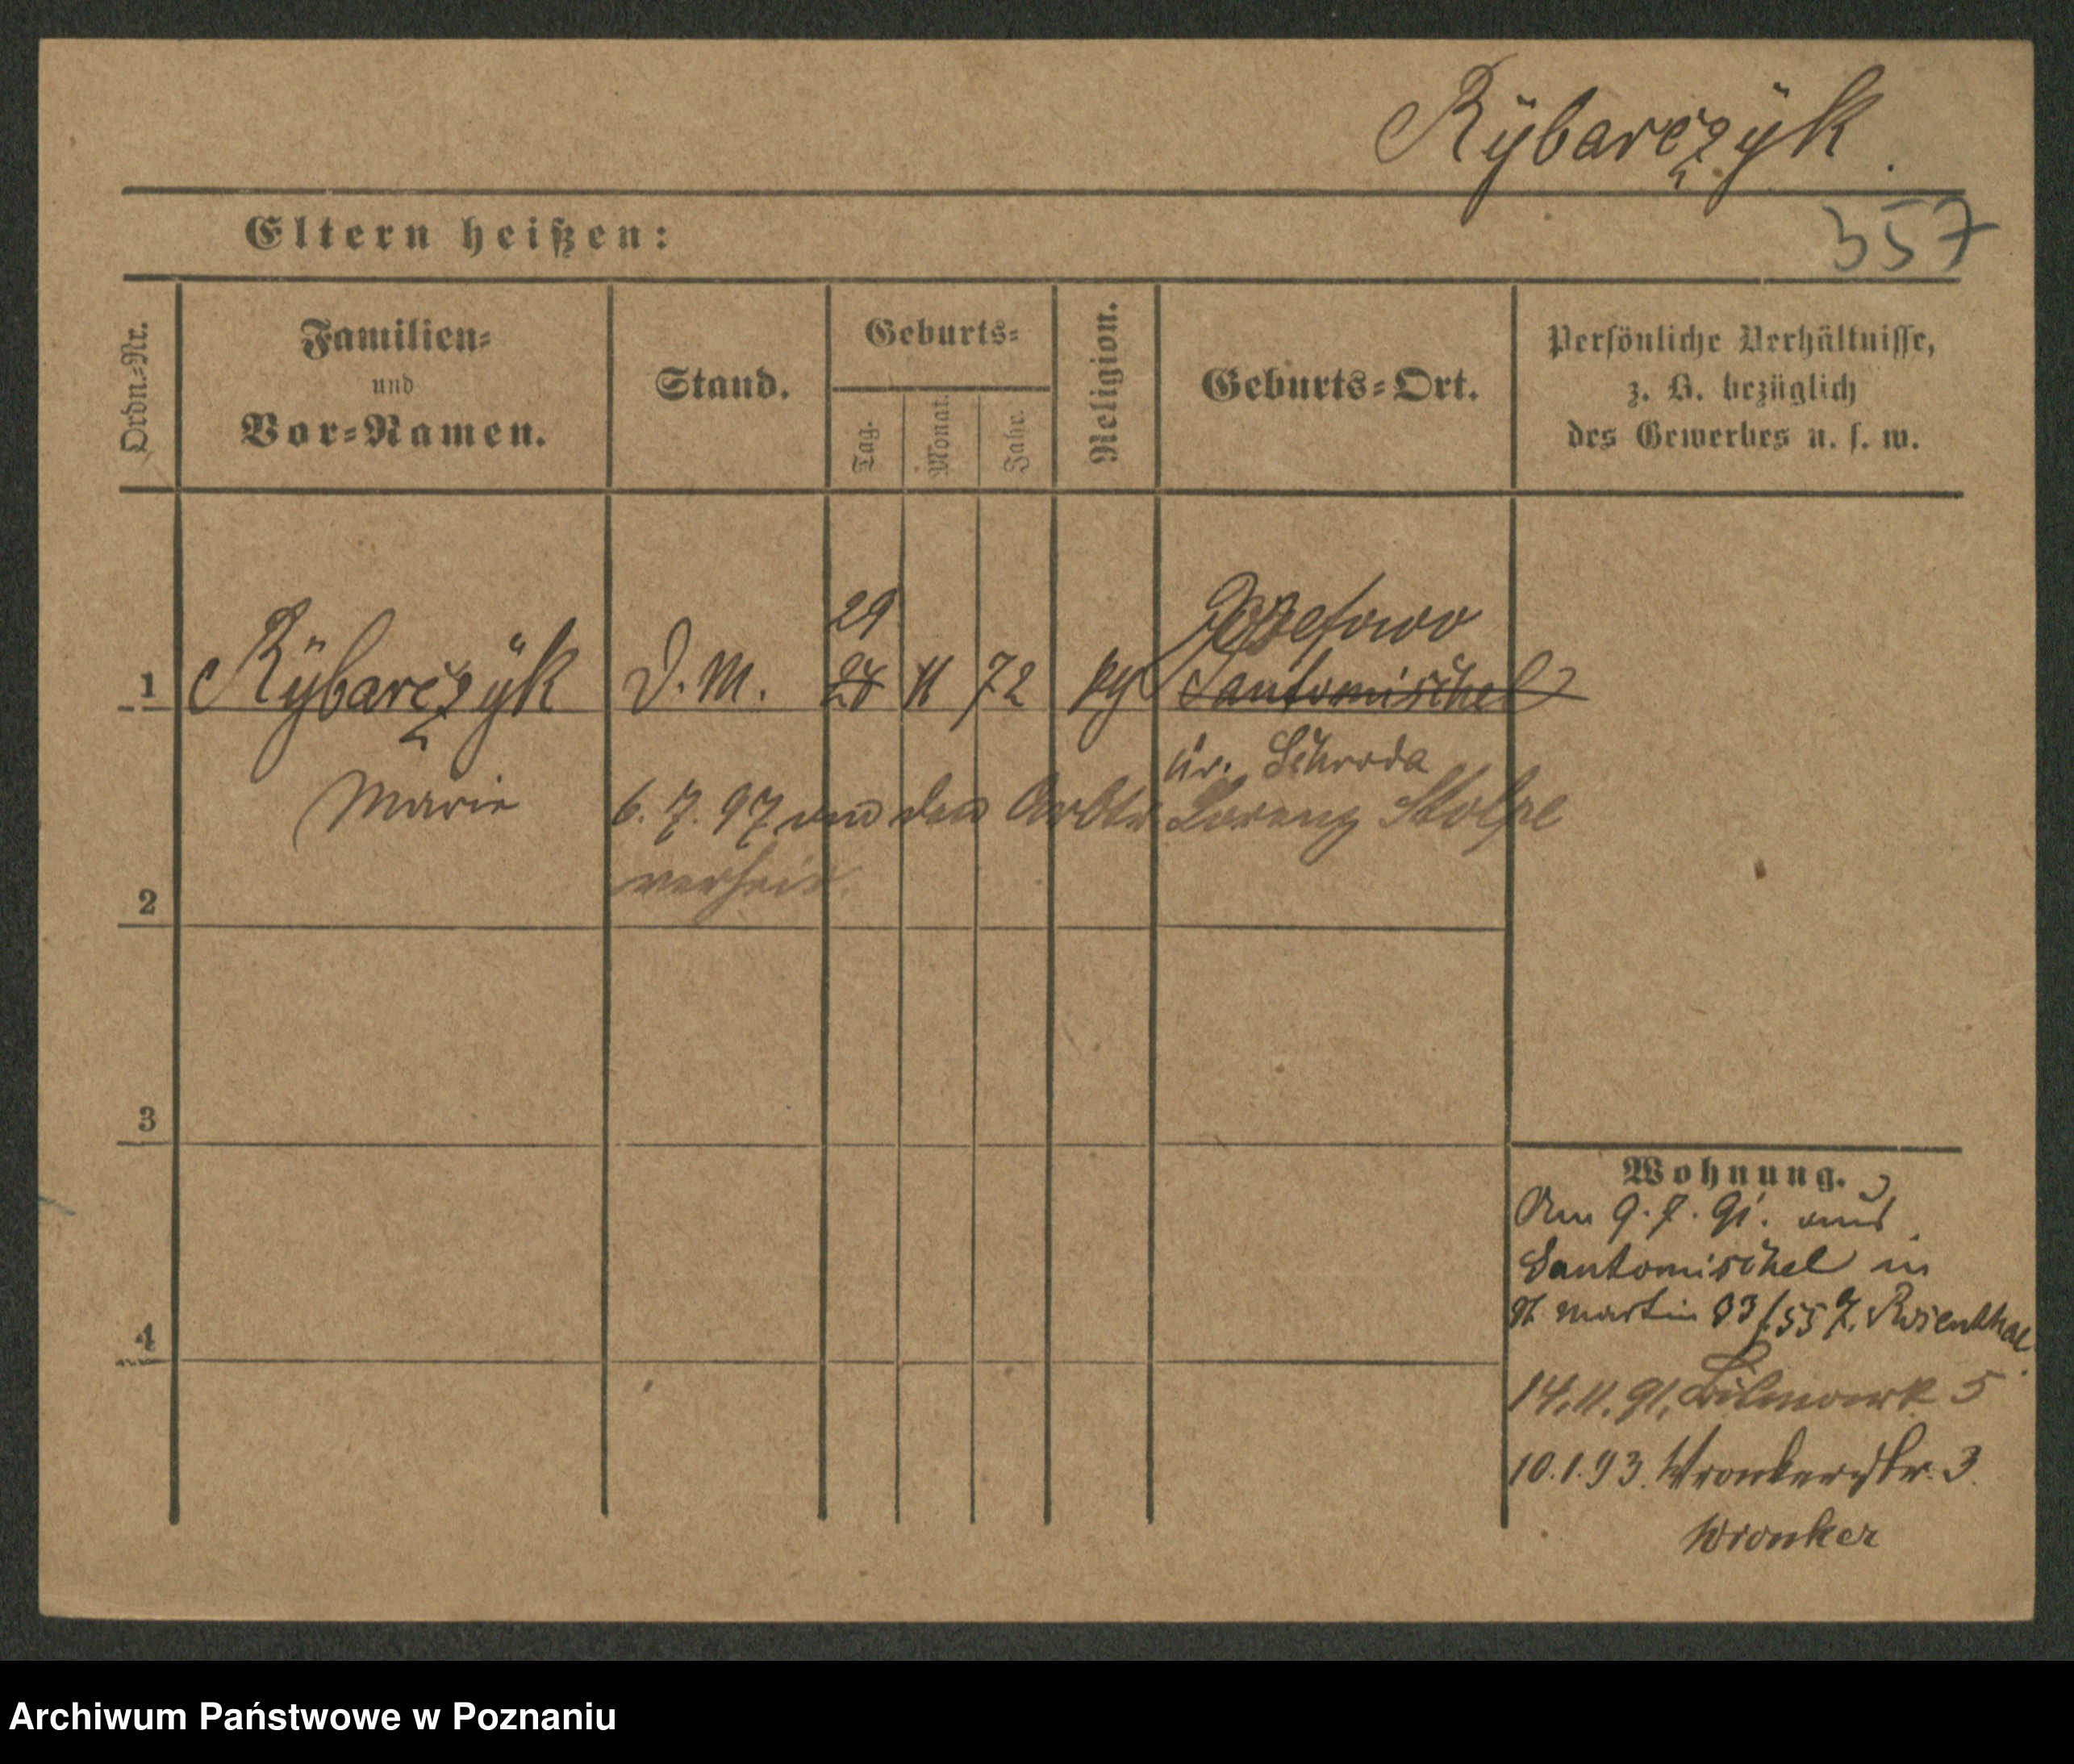 Rÿbarczÿk.
Eltern heißen:
357
Ordn.-Nr.
Familien-
und
Vor-Namen.
Stand.
Geburts-
Tag.
Monat.
Jahr.
Religion.
Geburts-Ort.
Persönliche Verhältnisse,
z. B. bezüglich
des Gewerbes u. s. w.
29
Jozefowo
1 Rÿbarczÿk D. M. 28 11 72 Santomischel
Kr. Schroda
Marie 6. 7. 97 den Arbtr Lorenz Stolpe
verheir.
2
3
4
Wohnung.
Am 9. 7. 91. aus
Santomischel in
St Martin 33/55 Rosenthal
14. 11. 91. 5
10. 1. 93. Wronkerstr. 3.
Wronker
Archiwum Państwowe w Poznaniu